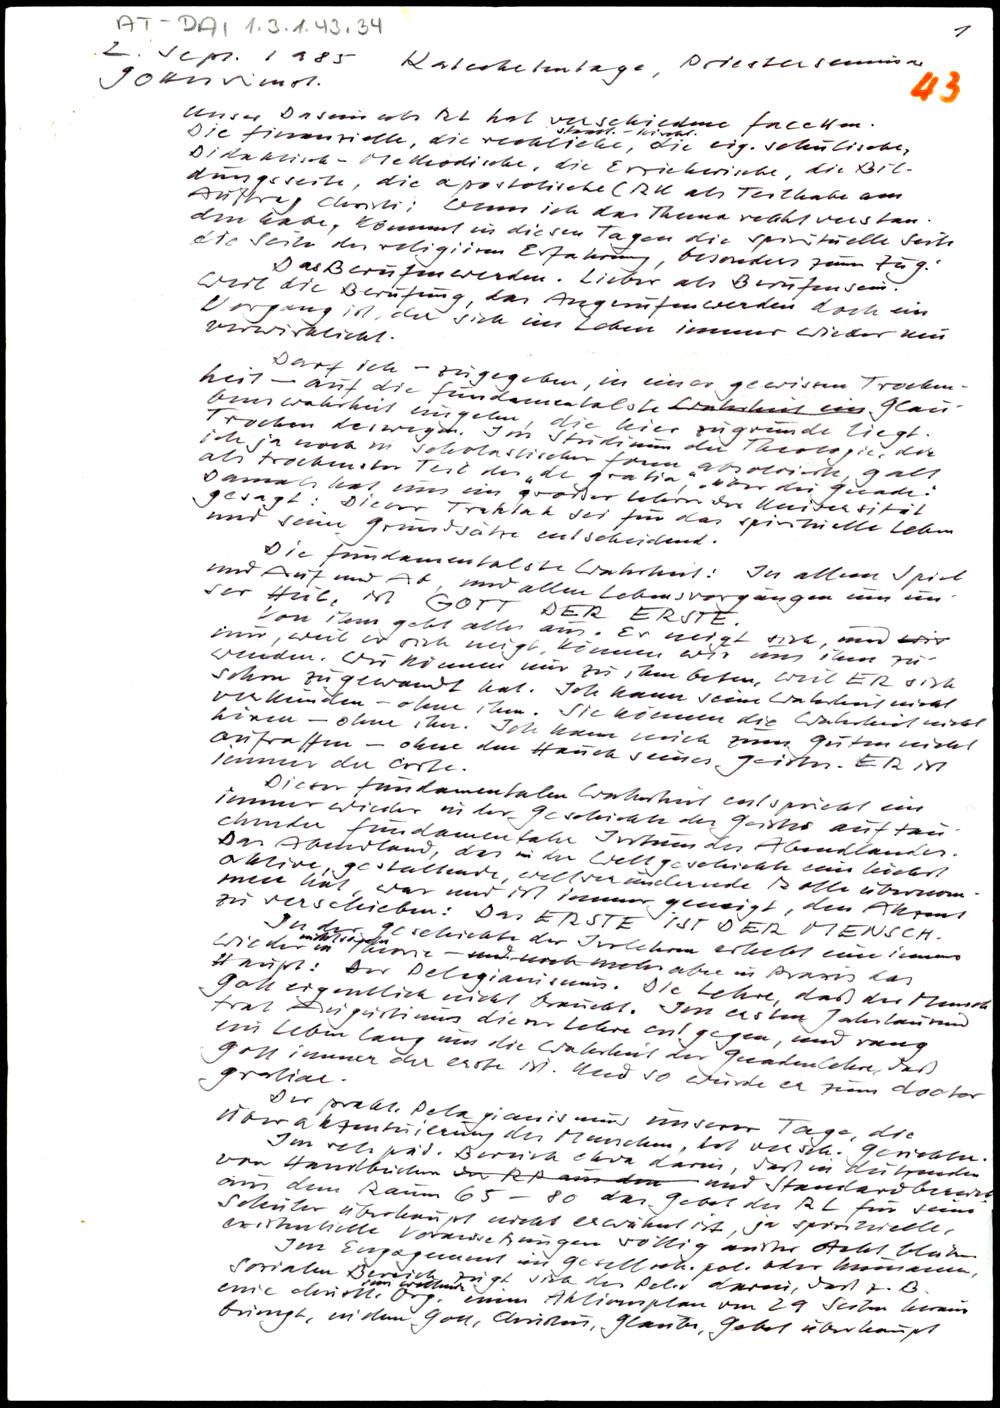 AT-DAI 1.3.1.43.34
1
2. Sept. 1985 Katechetentage, Priesterseminar
43
Gottesdienst.
Unser Dasein als RL hat verschiedene Facetten.
staatl.-kirchl.
Die finanzielle, die rechtliche, die eig. schulische,
Didaktisch-Methodische, die Erzieherische, die Bil-
dungsseite, die apostolische (RU als Teilhabe am
Auftrag Christi; Wenn ich das Thema recht verstan-
den habe, kommt in diesen Tagen die spirituelle Seite
die Seite der religiösen Erfahrung, besonders zum Zug:
Das Berufenwerden. Lieber als Berufensein.
Weil die Berufung, das Angerufenwerden doch ein
Vorgang ist, der sich im Leben immer wieder neu
verwirklicht.
Darf ich - zugegeben, in einer gewissen Trocken-
heit - auf die fundamentalste Wahrheit ein Glau-
benswahrheit eingehen, die hier zugrunde liegt.
Trocken deswegen. Im Studium der Theologie, die
ich ja noch in scholastischer Form absolvierte, galt
als trockenster Teil der "de gratia", "über die Gnade".
Damals hat uns ein großer Lehrer der Universität
gesagt: Dieser Traktat sei für das spirituelle Leben
und seine Grundsätze entscheidend.
Die fundamentalste Wahrheit: In allem Spiel
und Auf und Ab, und allen Lebensvorgängen um un-
ser Heil, ist GOTT DER ERSTE.
Von ihm geht alles aus. Er neigt sich, und wir
nur, weil er sich neigt, können wir uns ihm zu-
wenden. Wir können nur zu ihm beten, weil ER sich
schon zugewandt hat. Ich kann seine Wahrheit nicht
verkünden - ohne ihn. Sie können die Wahrheit nicht
hören - ohne ihn. Ich kann mich zum Guten nicht
aufraffen - ohne den Hauch seines Geistes. ER ist
immer der Erste.
Dieser fundamentalen Wahrheit entspricht ein
immer wieder in der Geschichte des Geistes auftau-
chender fundamentaler Irrtum des Abendlandes.
Das Abendland, das in der Weltgeschichte eine höchst
aktive, gestaltende, weltverändernde Rolle übernom-
men hat, war und ist immer geneigt, den Akzent
zu verschieben: Das ERSTE IST DER MENSCH.
In der Geschichte der Irrlehren erhebt eine immer
wieder in Theorie - und noch mehr aber in Praxis das
Haupt: Der Pelagianismus. Die Lehre, daß der Mensch
Gott eigentlich nicht braucht. Im ersten Jahrtausend
trat Augustinus dieser Lehre entgegen, und rang
ein Leben lang um die Wahrheit der Gnadenlehre, daß
Gott immer der erste ist. Und so wurde er zum doctor
gratiae.
Der prakt. Pelagianismus unserer Tage, die
Überakzentuierung des Menschen, hat versch. Gesichter.
Im rel. päd. Bereich etwa darin, daß in dutzenden
von Handbüchern der RP aus den und Standardwerken
aus dem Raum 65 - 80 das Gebet des RL für seine
Schüler überhaupt nicht erwähnt ist, ja spirituelle,
existentielle Voraussetzungen völlig außer Acht bleiben.
Im Engagement im gesellsch. pol. oder humanen,
sozialen Bereich zeigt sich der Pel. darin, daß z. B.
eine christl. Org. einen Aktionsplan von 29 Seiten heraus
bringt, in dem Gott, Christus, Glaube, Gebet überhaupt